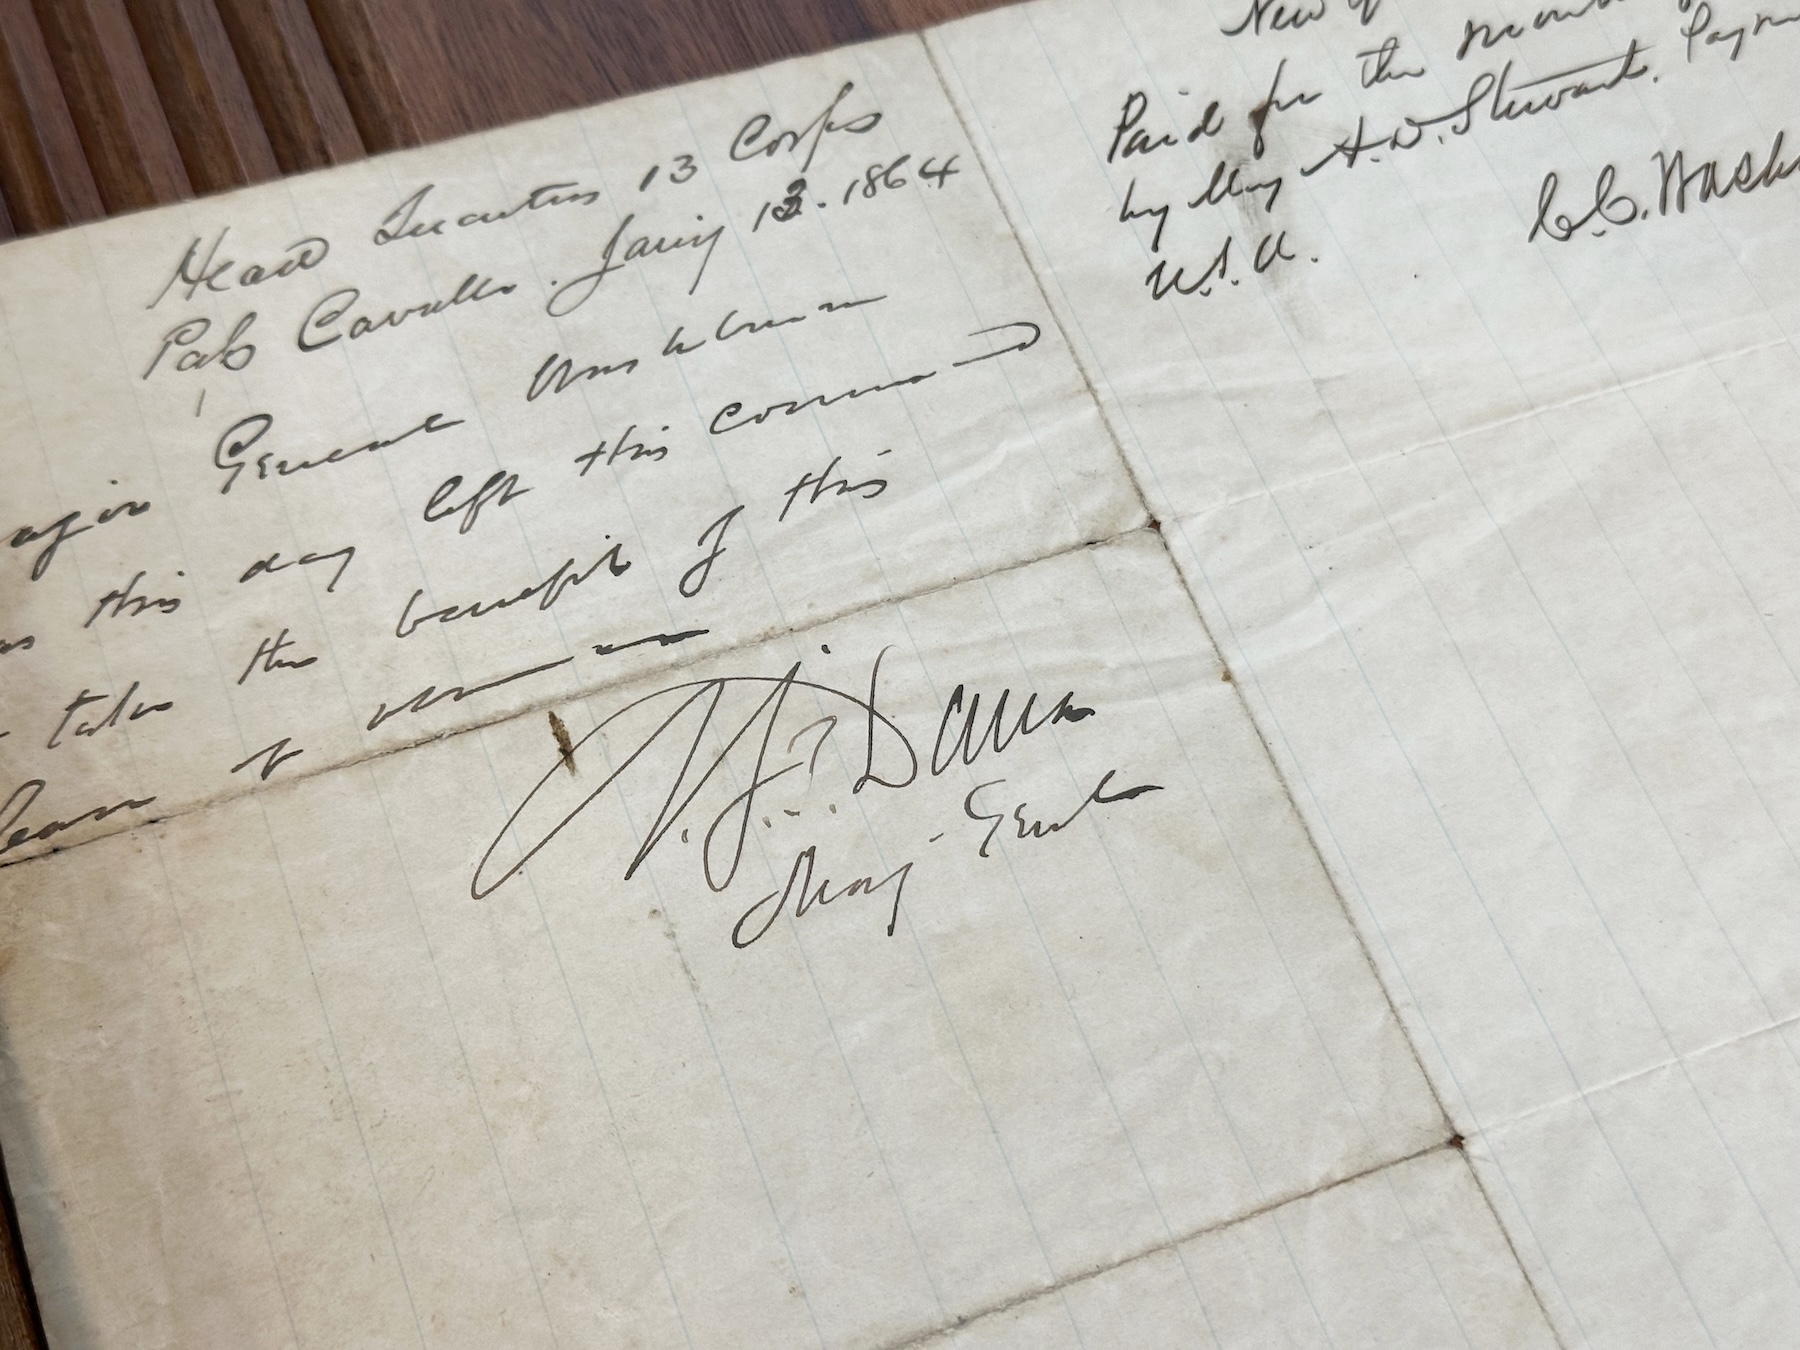 Head Quarters 13 Corps
Pass Cavallo. Jany 13. 1864
ajor General Washburn
as this day left this command
take the benefit of this
leave of
N.J.T. Dana
Maj Genl
New
Paid for the mon
by Maj A.D. Stewart. Paym
U.S.A.
C.C. Wash